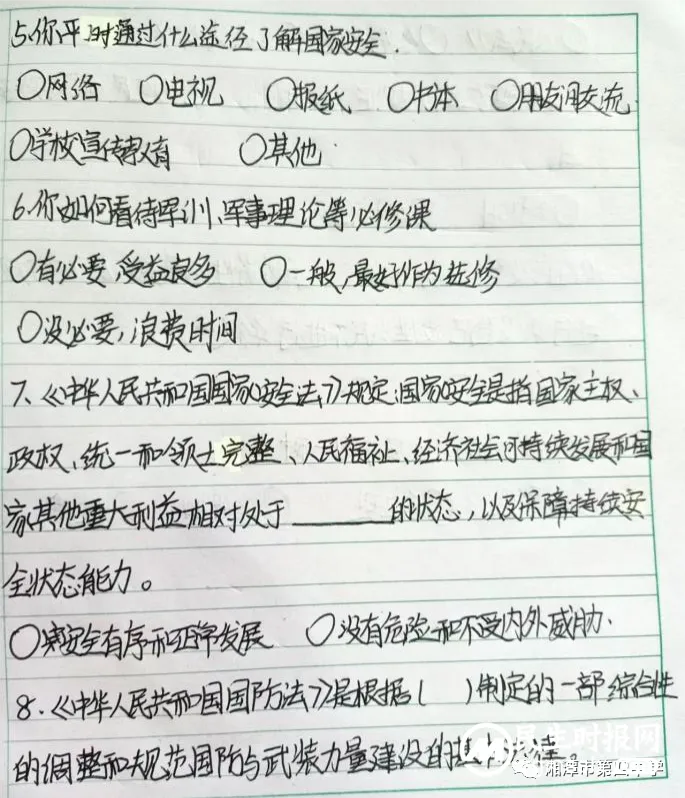 5.你平时通过什么途径了解国家安全.
○网络 ○电视 ○报纸 ○书本 ○朋友间交流.
○学校宣传教育 ○其他.
6.你如何看待军训、军事理论等必修课
○有必要,受益良多 ○一般,最好作为选修
○没必要,浪费时间
7、《中华人民共和国国家安全法》规定:国家安全是指国家主权、
政权、统一和领土完整、人民福祉、经济社会可持续发展和国
家其他重大利益相对处于______的状态,以及保障持续安
全状态能力。
安全有序和正常发展 ○没有危险和不受内外威胁.
8.《中华人民共和国国防法》是根据( )制定的一部综合性
的调整和规范国防与武装力量建设的基本法律。
民生时报网
湘潭市第四中学